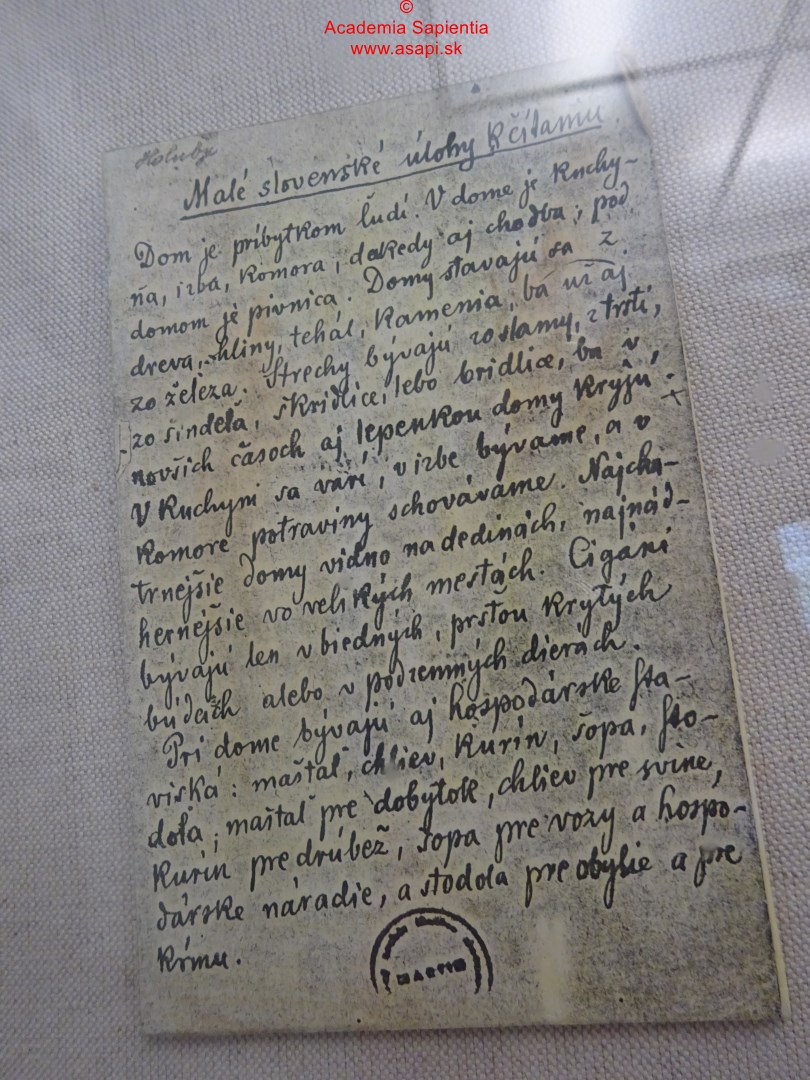 ©
Academia Sapientia
www.asapi.sk
Holuby
Malé slovenské úlohy k čítaniu.
Dom je príbytkom ľudí. V dome je kuchy-
ňa, izba, komora, dakedy aj chodba; pod
domom je pivnica. Domy stavajú sa z
dreva, hliny, tehál, kamenia, ba už aj
zo železa. Strechy bývajú zo slamy, z trstí,
zo šindeľa, škridlice, lebo bridlice, ba v
novších časoch aj lepenkou domy kryjú.
V kuchyni sa varí, v izbe bývame, a v
komore potraviny schovávame. Najcha-
trnejšie domy vidno na dedinách, najnád-
hernejšie vo velikých mestách. Cigáni
bývajú len v biedných, prsťou krytých
búdach alebo v podzemných dierách.
Pri dome bývajú aj hospodárske sta-
viská: maštaľ, chliev, kurín, šopa, sto-
dola; maštaľ pre dobytok, chliev pre svine,
kurín pre drúbež, šopa pre vozy a hospo-
dárske náradie, a stodola pre obylie a pre
krmu.
MARTIN